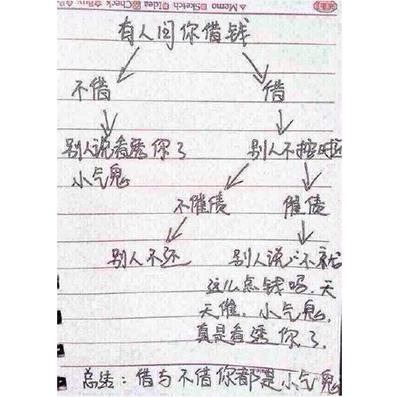 Memo Sketch Idea Check
有人问你借钱
不借 借
别人说看透你了 别人不按时还
小气鬼
不催债 催债
别人不还 别人说:不就
这么点钱吗,天
天催,小气鬼,
真是看透你了.
总结:借与不借你都是小气鬼